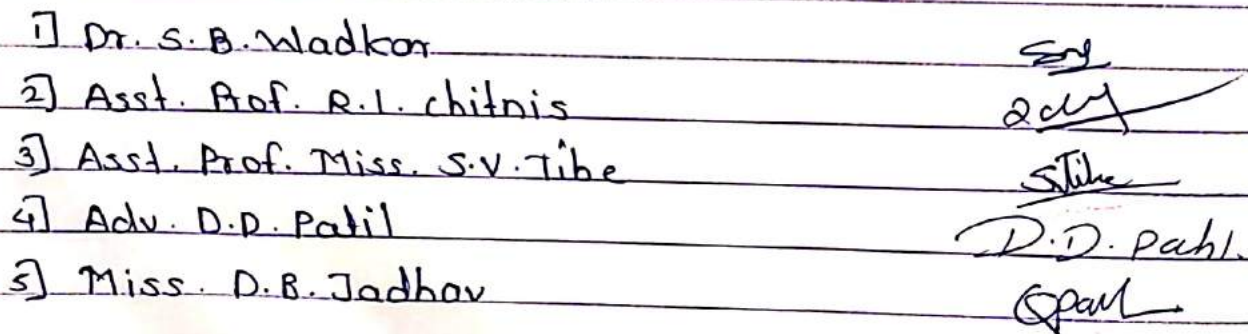 1] Dr. S. B. Wadkar
2] Asst. Prof. R. L. chitnis
3] Asst. Prof. Miss. S.V. Tibe
STibe
4] Adv. D.D. Patil
D.D. Patil.
5] Miss. D.B. Jadhav